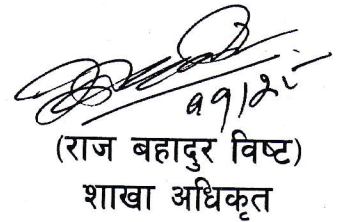 (राज बहादुर विष्ट)
शाखा अधिकृत